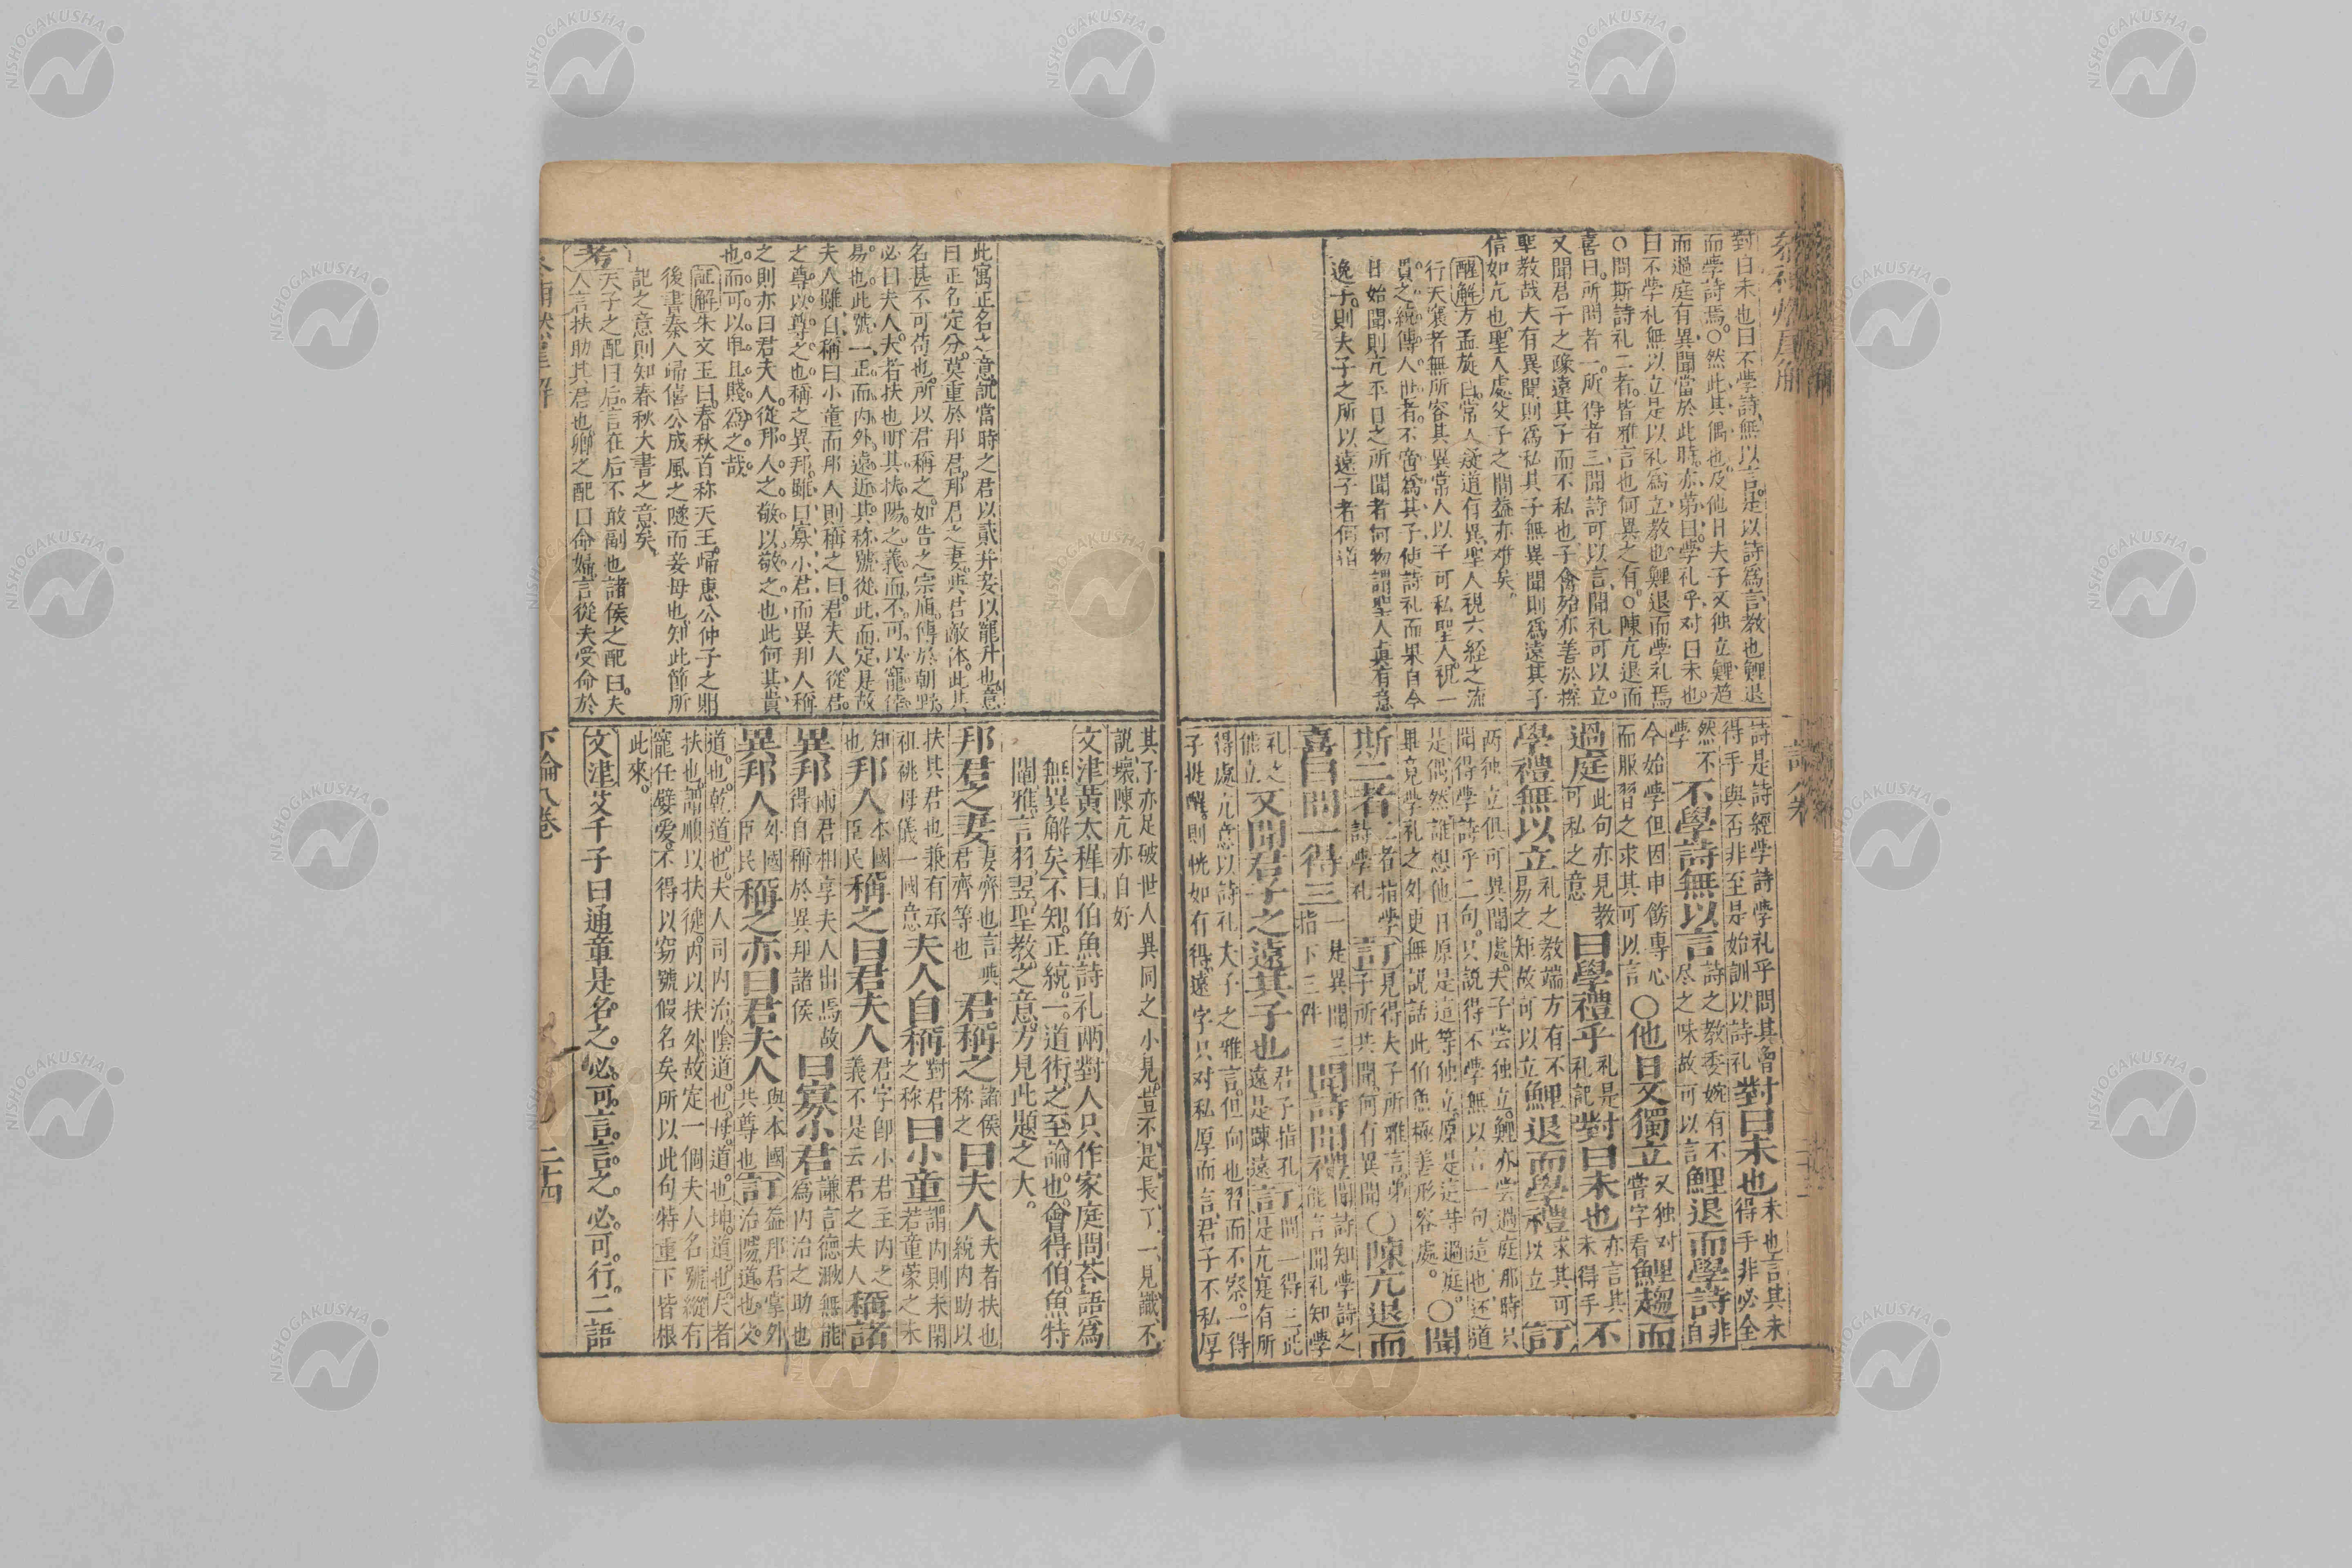 對曰未也曰不學詩無以言是以詩爲言教也鯉退
而學詩焉○然此其偶也及他日夫子又独立鯉趨
而過庭有異聞當於此時亦第曰學礼乎对曰未也
曰不學礼無以立是以礼爲立教也鯉退而學礼焉
○問斯詩礼二者皆雅言也何異之有○陳亢退而
喜曰所問者一所得者三聞詩可以言聞礼可以立
又聞君子之遠其子而不私也子禽殆亦善於
聖教哉夫有異聞則爲私其子無異聞則爲遠其子
信如亢也聖人處父子之間益亦难矣
醒解方孟旋曰常人疑道有異聖人視六経之流
行天襄者無所容其異常人以子可私聖人視一
貫之統傳人世者不啻爲其子使詩礼而果自今
日始聞則亢平日之所聞者何物謂聖人真有意
遠子則夫子之所以遠子者何谙
詩是詩經學詩學礼乎問其曾
得手與否非至是始訓以詩礼
對曰未也
未也言其未
得手非必全
然不
學
不學詩無以言
詩之教委婉有不
尽之味故可以言
鯉退而學詩
非
自
今始學但因申飭專心
而服習之求其可以言
○他日又獨立
又独对
嘗字看
鯉趨而
過庭
此句亦見教
可私之意
曰學禮乎
礼是
礼記
對曰未也
亦言其
未得手
不
學禮無以立
礼之教端方有不
易之矩故可以立
鯉退而學禮
求其可
以立
訂
两独立俱可異聞處夫子尝独立鯉亦尝過庭那時只
聞得學詩乎二句只説得不學無以言一句這也还道
是偶然誰想他日原是這等独立原是這等過庭
畢竟學礼之外更無説話此伯魚極善形容處
○聞
斯二者
二者指學
詩學礼
訂
見得夫子所雅言弟
子所共聞何有異聞
○陳亢退而
喜曰問一得三
一是異聞三
指下三件
聞詩聞禮
聞詩知學詩之
能言聞礼知學
礼之
能立
又聞君子之遠其子也
君子指孔
遠是疎遠
訂問一得三此
言是亢寔有所
得處亢意以詩礼夫子之雅言但向也習而不察一得
子提醒則恍如有得遠字只对私厚而言君子不私厚
此寓正名之意説當時之君以貳并妾以寵升也意
曰正名定分莫重於邦君邦君之妻與君敵体此其
名甚不可苟也所以君稱之如告之宗庙傳於朝野
必曰夫人夫者扶也明其扶陽之義而不可以寵倖
易也此號一正而内外遠近其称號從此而定是故
夫人雖自稱曰小童而邦人則稱之曰君夫人從君
之尊以尊之也稱之異邦雖曰寡小君而異邦人稱
之則亦曰君夫人從邦人之敬以敬之也此何其貴
也而可以卑且賤爲之哉
証解朱文王曰春秋首称天王歸惠公仲子之賵
後書秦人歸僖公成風之隧而妾母也知此節所
記之意則知春秋大書之意矣
考天子之配曰后言在后不敢副也諸侯之配曰夫
人言扶助其君也卿之配曰命婦言從夫受命於
其子亦足破世人異同之小見豈不是長了一見讖不
説壞陳亢亦自好
文津黃太穉曰伯魚詩礼兩對人只作家庭問荅語爲
無異解矣不知正統一道術之至論也會得伯魚特
闡雅言羽翌聖教之意方見此題之大
邦君之妻
妻齊也言與
君齊等也
君稱之
諸侯
称之
曰夫人
夫者扶也
統内助以
扶其君也兼有承
祖祧母儀一國意
夫人自稱
對君
之称
曰小童
謂内則未閑
若童蒙之未
知
也
邦人
本國
臣民
稱之曰君夫人
君字卽小君主内之
義不是云君之夫人
稱諸
異邦
兩君相享夫人出焉故
得自稱於異邦諸侯
曰寡小君
謙言德溦無能
爲内治之助也
異邦人
外國
臣民
稱之亦曰君夫人
與本國
共尊也
訂
益邦君掌外
治陽道也父
道也乾道也夫人司内治陰道也母道也坤道也尺者
扶也謂順以扶徤内以扶外故定一個夫人名號縱有
寵任嬖爱不得以窃號假名矣所以此句特重下皆根
此來
文津艾千子曰通章是名之必可言言之必可行二語
下論八卷
二十四